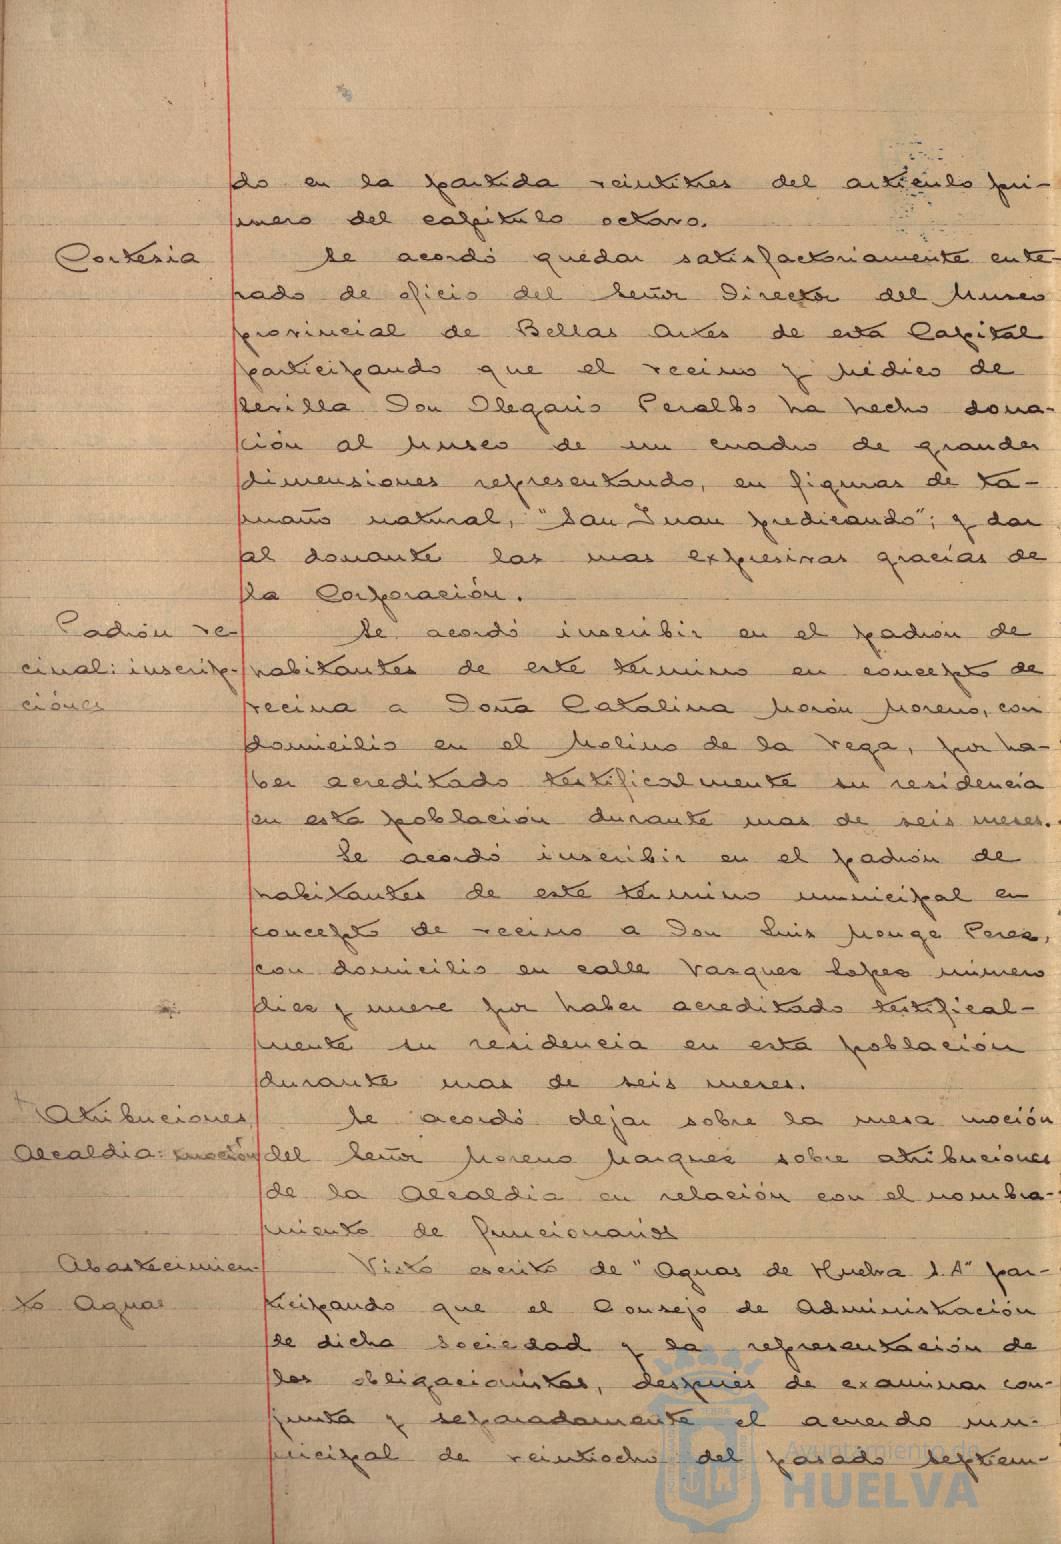 do en la partida veintitres del artículo pri-
mero del capítulo octavo.
Cortesia
Se acordó quedar satisfactoriamente ente-
rado de oficio del Señor Director del Museo
provincial de Bellas Artes de esta Capital
participando que el vecino y médico de
Sevilla Don Olegario Peralbo ha hecho dona-
ción al Museo de un cuadro de grandes
dimensiones representando, en figuras de ta-
maño natural, "San Juan predicando"; y dar
al donante las mas expresivas gracias de
la Corporación.
Padrón ve-
cinal: inscrip-
ciónes
Se acordó inscribir en el padrón de
habitantes de este término en concepto de
vecina a Doña Catalina Morón Moreno, con
domicilio en el Molino de la Vega, por ha-
ber acreditado testificalmente su residencia
en esta población durante mas de seis meses.
Se acordó inscribir en el padrón de
habitantes de este término municipal en
concepto de vecino a Don Luis Monge Perez,
con domicilio en calle Vasques Lopez número
diez y nueve por haber acreditado testifical-
mente su residencia en esta población
durante mas de seis meses.
Atribuciones
Alcaldia: moción
Se acordó dejar sobre la mesa moción
del Señor Moreno Marquez sobre atribuciones
de la Alcaldia en relación con el nombra-
miento de funcionarios
Abastecimien-
to Aguas
Visto escrito de "Aguas de Huelva S.A" par-
ticipando que el Consejo de Administración
de dicha Sociedad y la representación de
los obligacionistas, después de examinar con-
junta y separadamente el acuerdo mu-
nicipal de veintiocho del pasado Septiem-
Ayuntamiento de
HUELVA